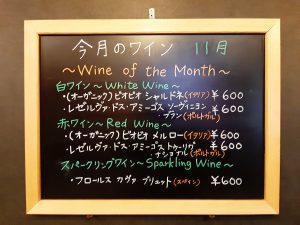 今月のワイン 11月
～Wine of the Month～
白ワイン～White Wine～
・(オーガニック)ピオピオ シャルドネ(イタリア) ¥600
・レゼルヴァ・ドス・アミーゴス ソーヴィニヨン ¥600
ブラン(ポルトガル)
赤ワイン～Red Wine～
・(オーガニック)ピオピオ メルロー(イタリア) ¥600
・レゼルヴァ・ドス・アミーゴス トゥーリガ ¥600
ナショナル(ポルトガル)
スパークリングワイン～Sparkling Wine～
・フロールス カヴァ ブリュット(スペイン) ¥600